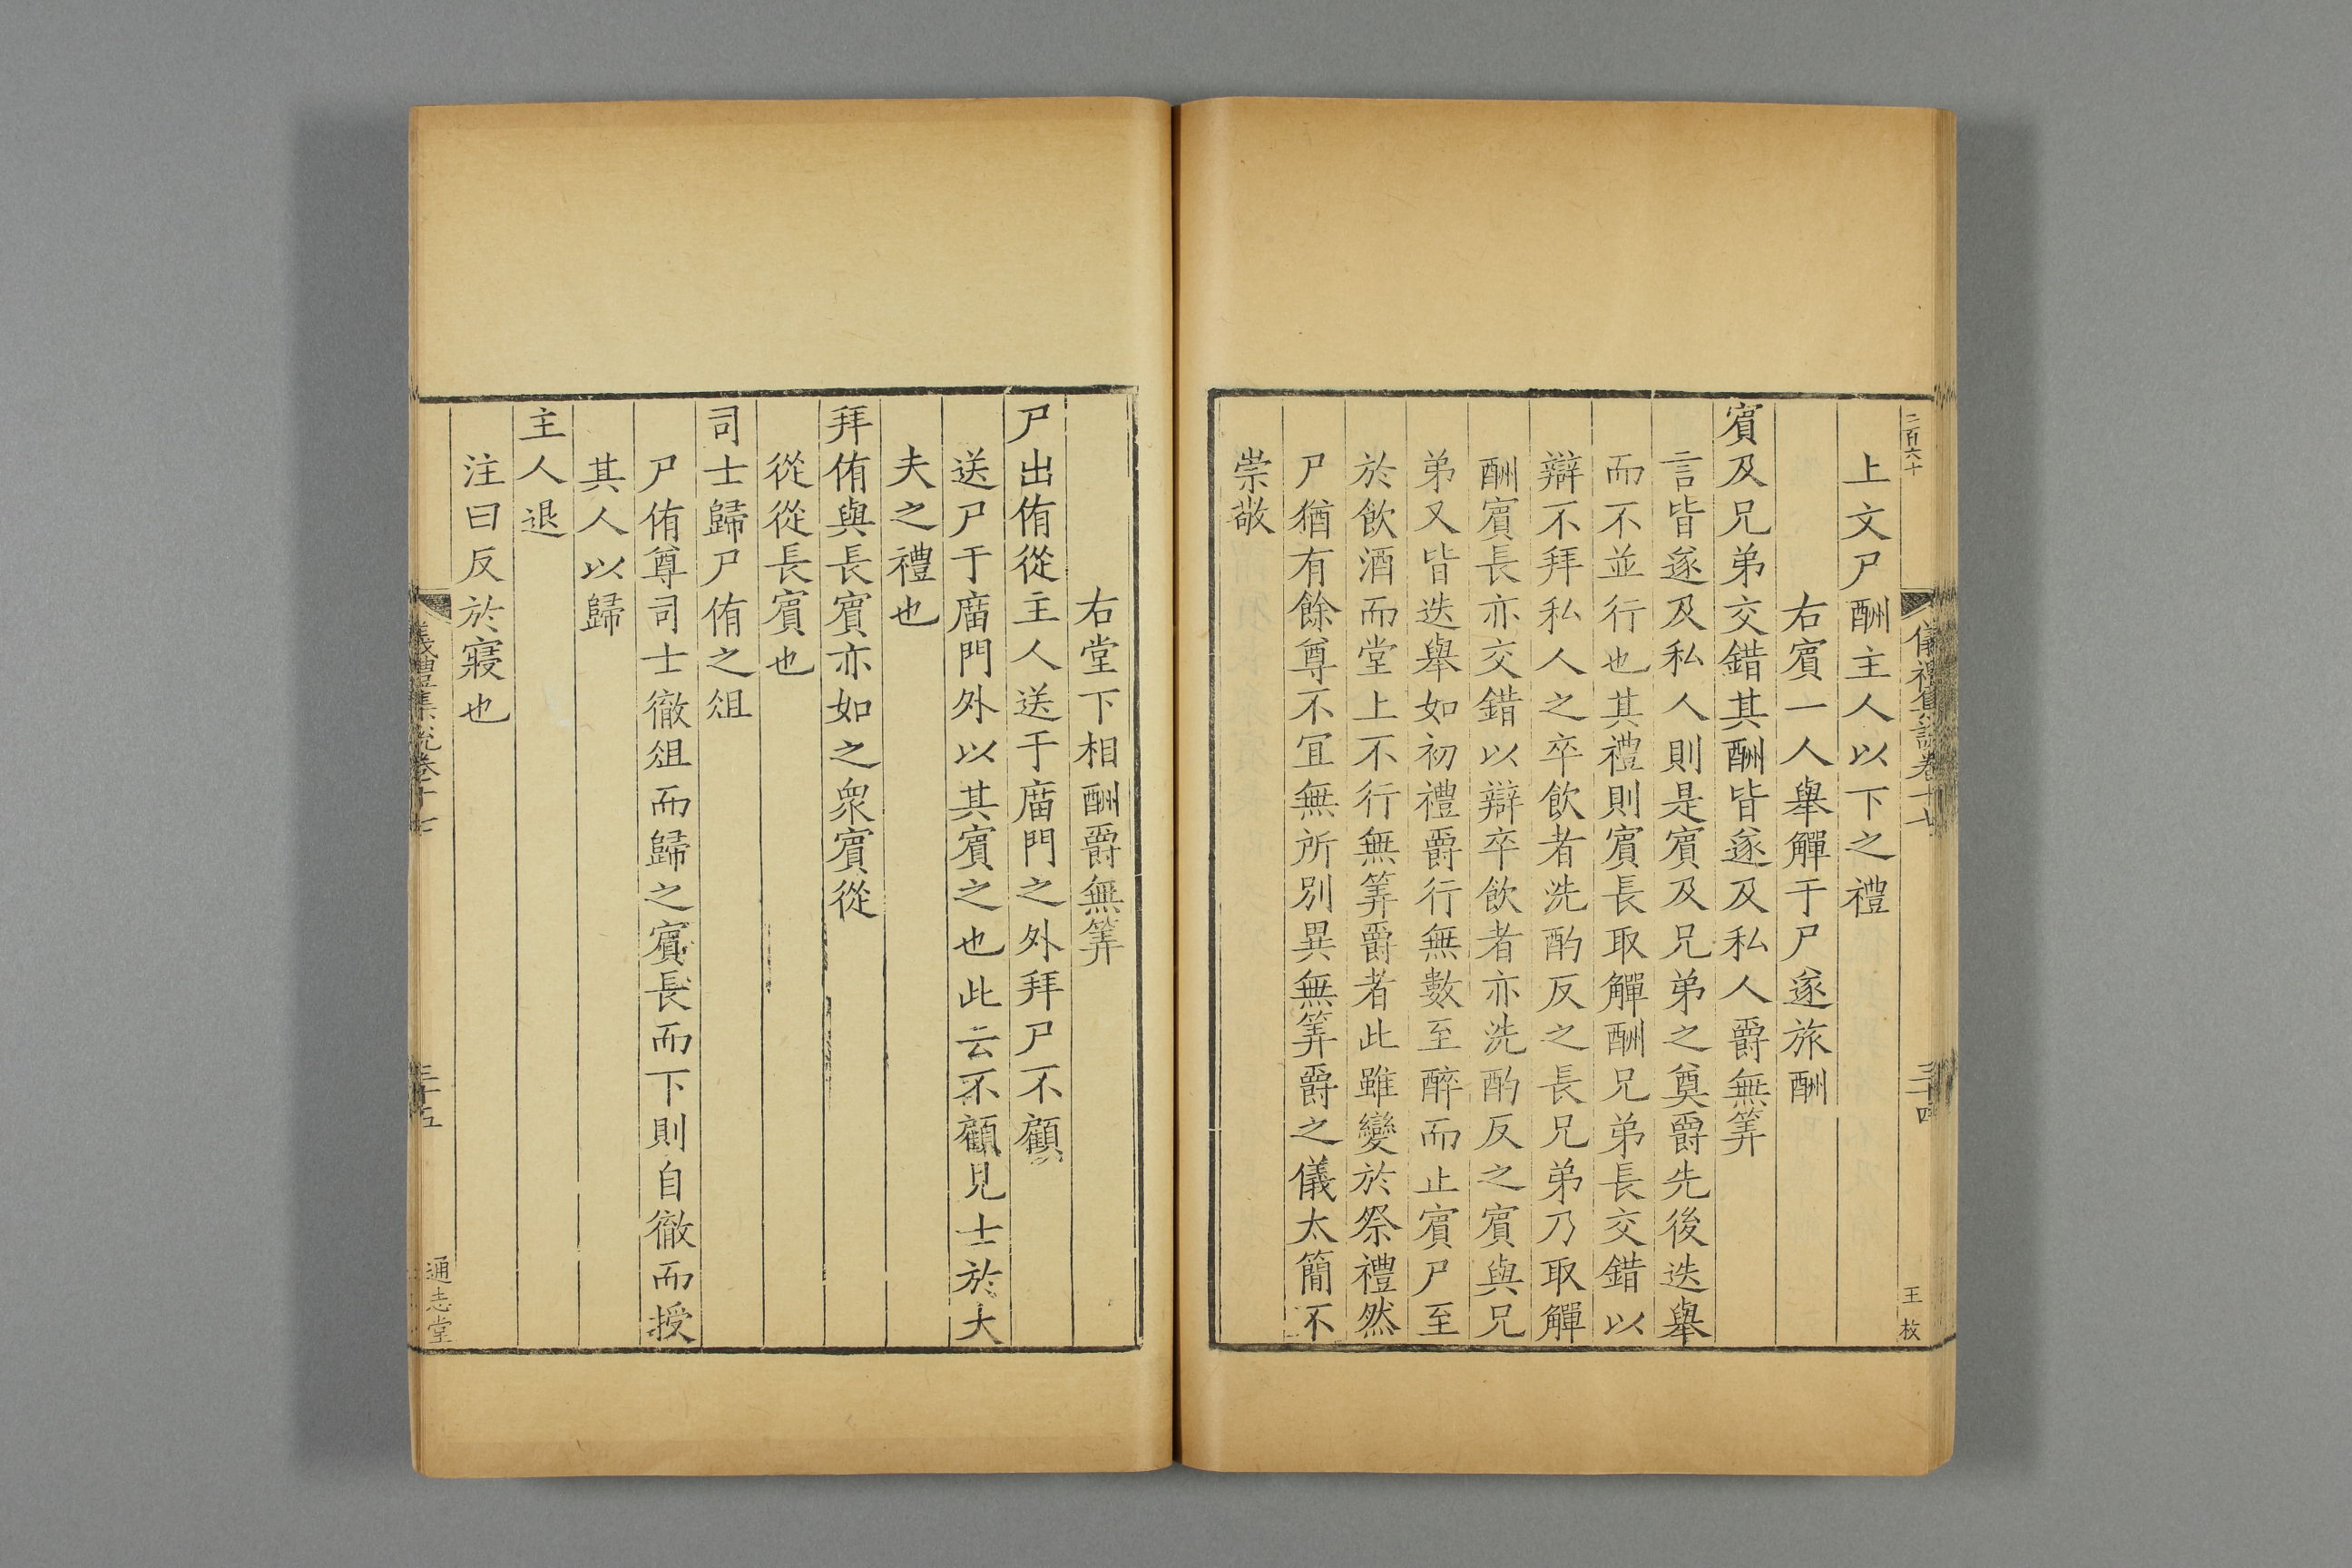 二百六十
儀禮集說卷十七
三十四
王枚
上文尸酬主人以下之禮
右賓一人舉觶于尸遂旅酬
賓及兄弟交錯其酬皆遂及私人爵無筭
言皆遂及私人則是賓及兄弟之奠爵先後迭舉
而不並行也其禮則賓長取觶酬兄弟長交錯以
辯不拜私人之卒飲者洗酌反之長兄弟乃取觶
酬賓長亦交錯以辯卒飲者亦洗酌反之賓與兄
弟又皆迭舉如初禮爵行無數至醉而止賓尸至
於飲酒而堂上不行無筭爵者此雖變於祭禮然
尸猶有餘尊不宜無所別異無筭爵之儀太簡不
崇敬
右堂下相酬爵無筭
尸出侑從主人送于廟門之外拜尸不顧
送尸于廟門外以其賓之也此云不顧見士於大
夫之禮也
拜侑與長賓亦如之衆賓從
從從長賓也
司士歸尸侑之俎
尸侑尊司士徹俎而歸之賓長而下則自徹而授
其人以歸
主人退
注曰反於寢也
儀禮集說卷十七
三十五
通志堂